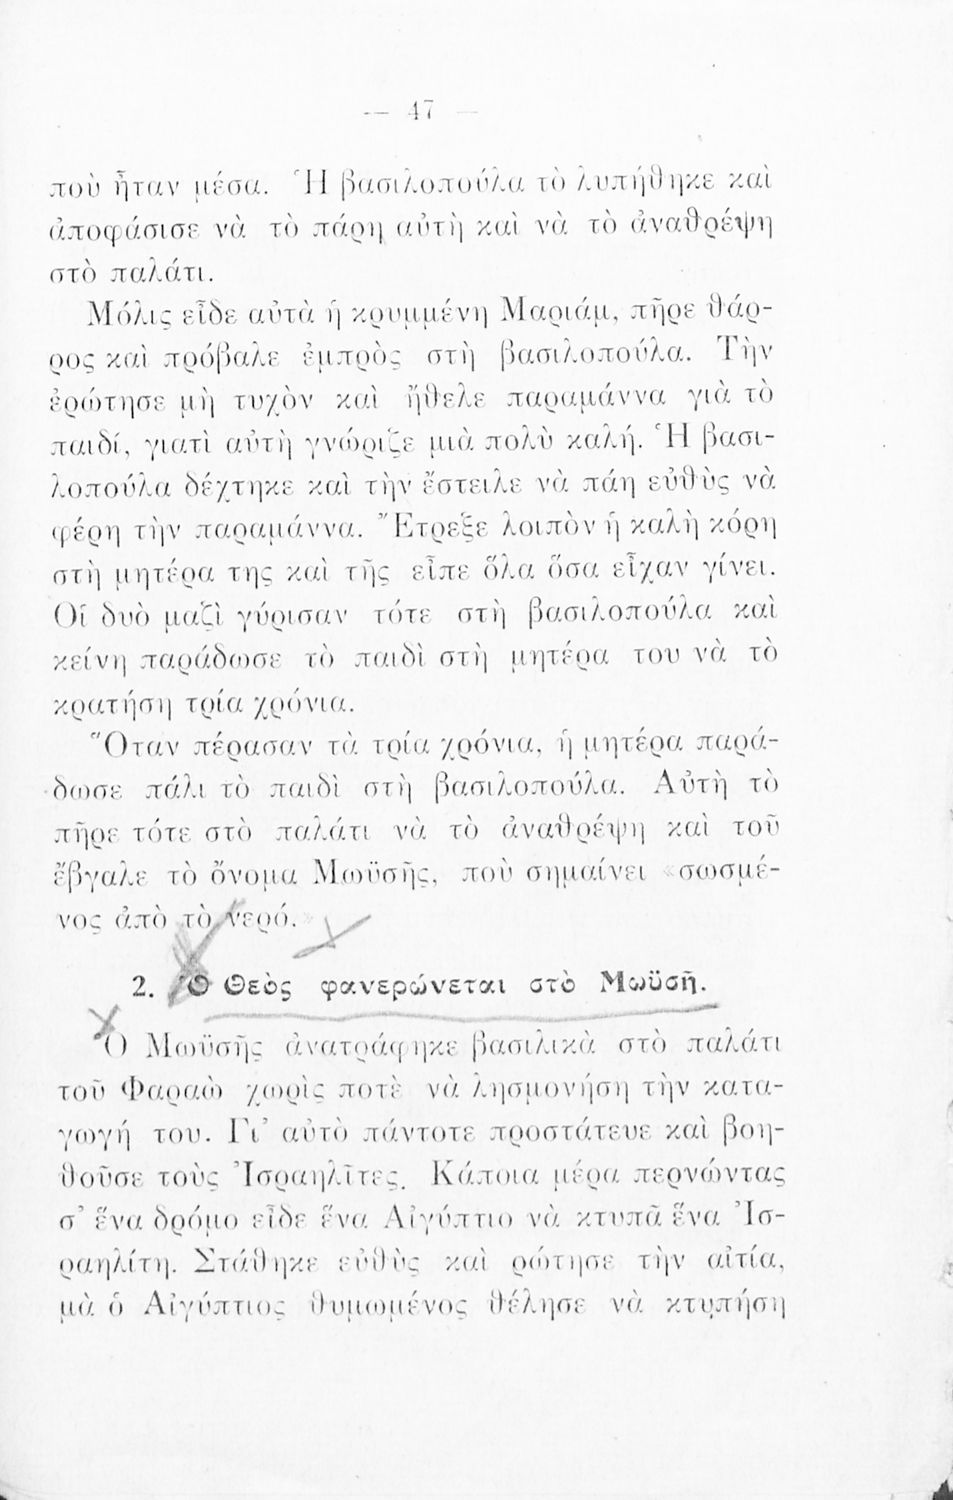 — 47 —
ποὺ ἦταν μέσα. Ἡ βασιλοπούλα τὸ λυπήθηκε καὶ
ἀποφάσισε νὰ τὸ πάρη αὐτὴ καὶ νὰ τὸ ἀναθρέψη
στὸ παλάτι.
Μόλις εἶδε αὐτὰ ἡ κρυμμένη Μαριάμ, πῆρε θάρ-
ρος καὶ πρόβαλε ἐμπρὸς στὴ βασιλοπούλα. Τὴν
ἐρώτησε μὴ τυχὸν καὶ ἤθελε παραμάννα γιὰ τὸ
παιδί, γιατὶ αὐτὴ γνώριζε μιὰ πολὺ καλή. Ἡ βασι-
λοπούλα δέχτηκε καὶ τὴν ἔστειλε νὰ πάη εὐθὺς νὰ
φέρη τὴν παραμάννα. Ἔτρεξε λοιπὸν ἡ καλὴ κόρη
στὴ μητέρα της καὶ τῆς εἶπε ὅλα ὅσα εἶχαν γίνει.
Οἱ δυὸ μαζὶ γύρισαν τότε στὴ βασιλοπούλα καὶ
κείνη παράδωσε τὸ παιδὶ στὴ μητέρα του νὰ τὸ
κρατήση τρία χρόνια.
Ὅταν πέρασαν τὰ τρία χρόνια, ἡ μητέρα παρά-
δωσε πάλι τὸ παιδὶ στὴ βασιλοπούλα. Αὐτὴ τὸ
πῆρε τότε στὸ παλάτι νὰ τὸ ἀναθρέψη καὶ τοῦ
ἔβγαλε τὸ ὄνομα Μωϋσῆς, ποὺ σημαίνει «σωσμέ-
νος ἀπὸ τὸ νερό.»
2. Ὁ Θεὸς φανερώνεται στὸ Μωϋσῆ.
Ὁ Μωϋσῆς ἀνατράφηκε βασιλικὰ στὸ παλάτι
τοῦ Φαραὼ χωρὶς ποτὲ νὰ λησμονήση τὴν κατα-
γωγή του. Γι' αὐτὸ πάντοτε προστάτευε καὶ βοη-
θοῦσε τοὺς Ἰσραηλῖτες. Κάποια μέρα περνώντας
σ' ἕνα δρόμο εἶδε ἕνα Αἰγύπτιο νὰ κτυπᾶ ἕνα Ἰσ-
ραηλίτη. Στάθηκε εὐθὺς καὶ ρώτησε τὴν αἰτία,
μὰ ὁ Αἰγύπτιος θυμωμένος θέλησε νὰ κτυπήση